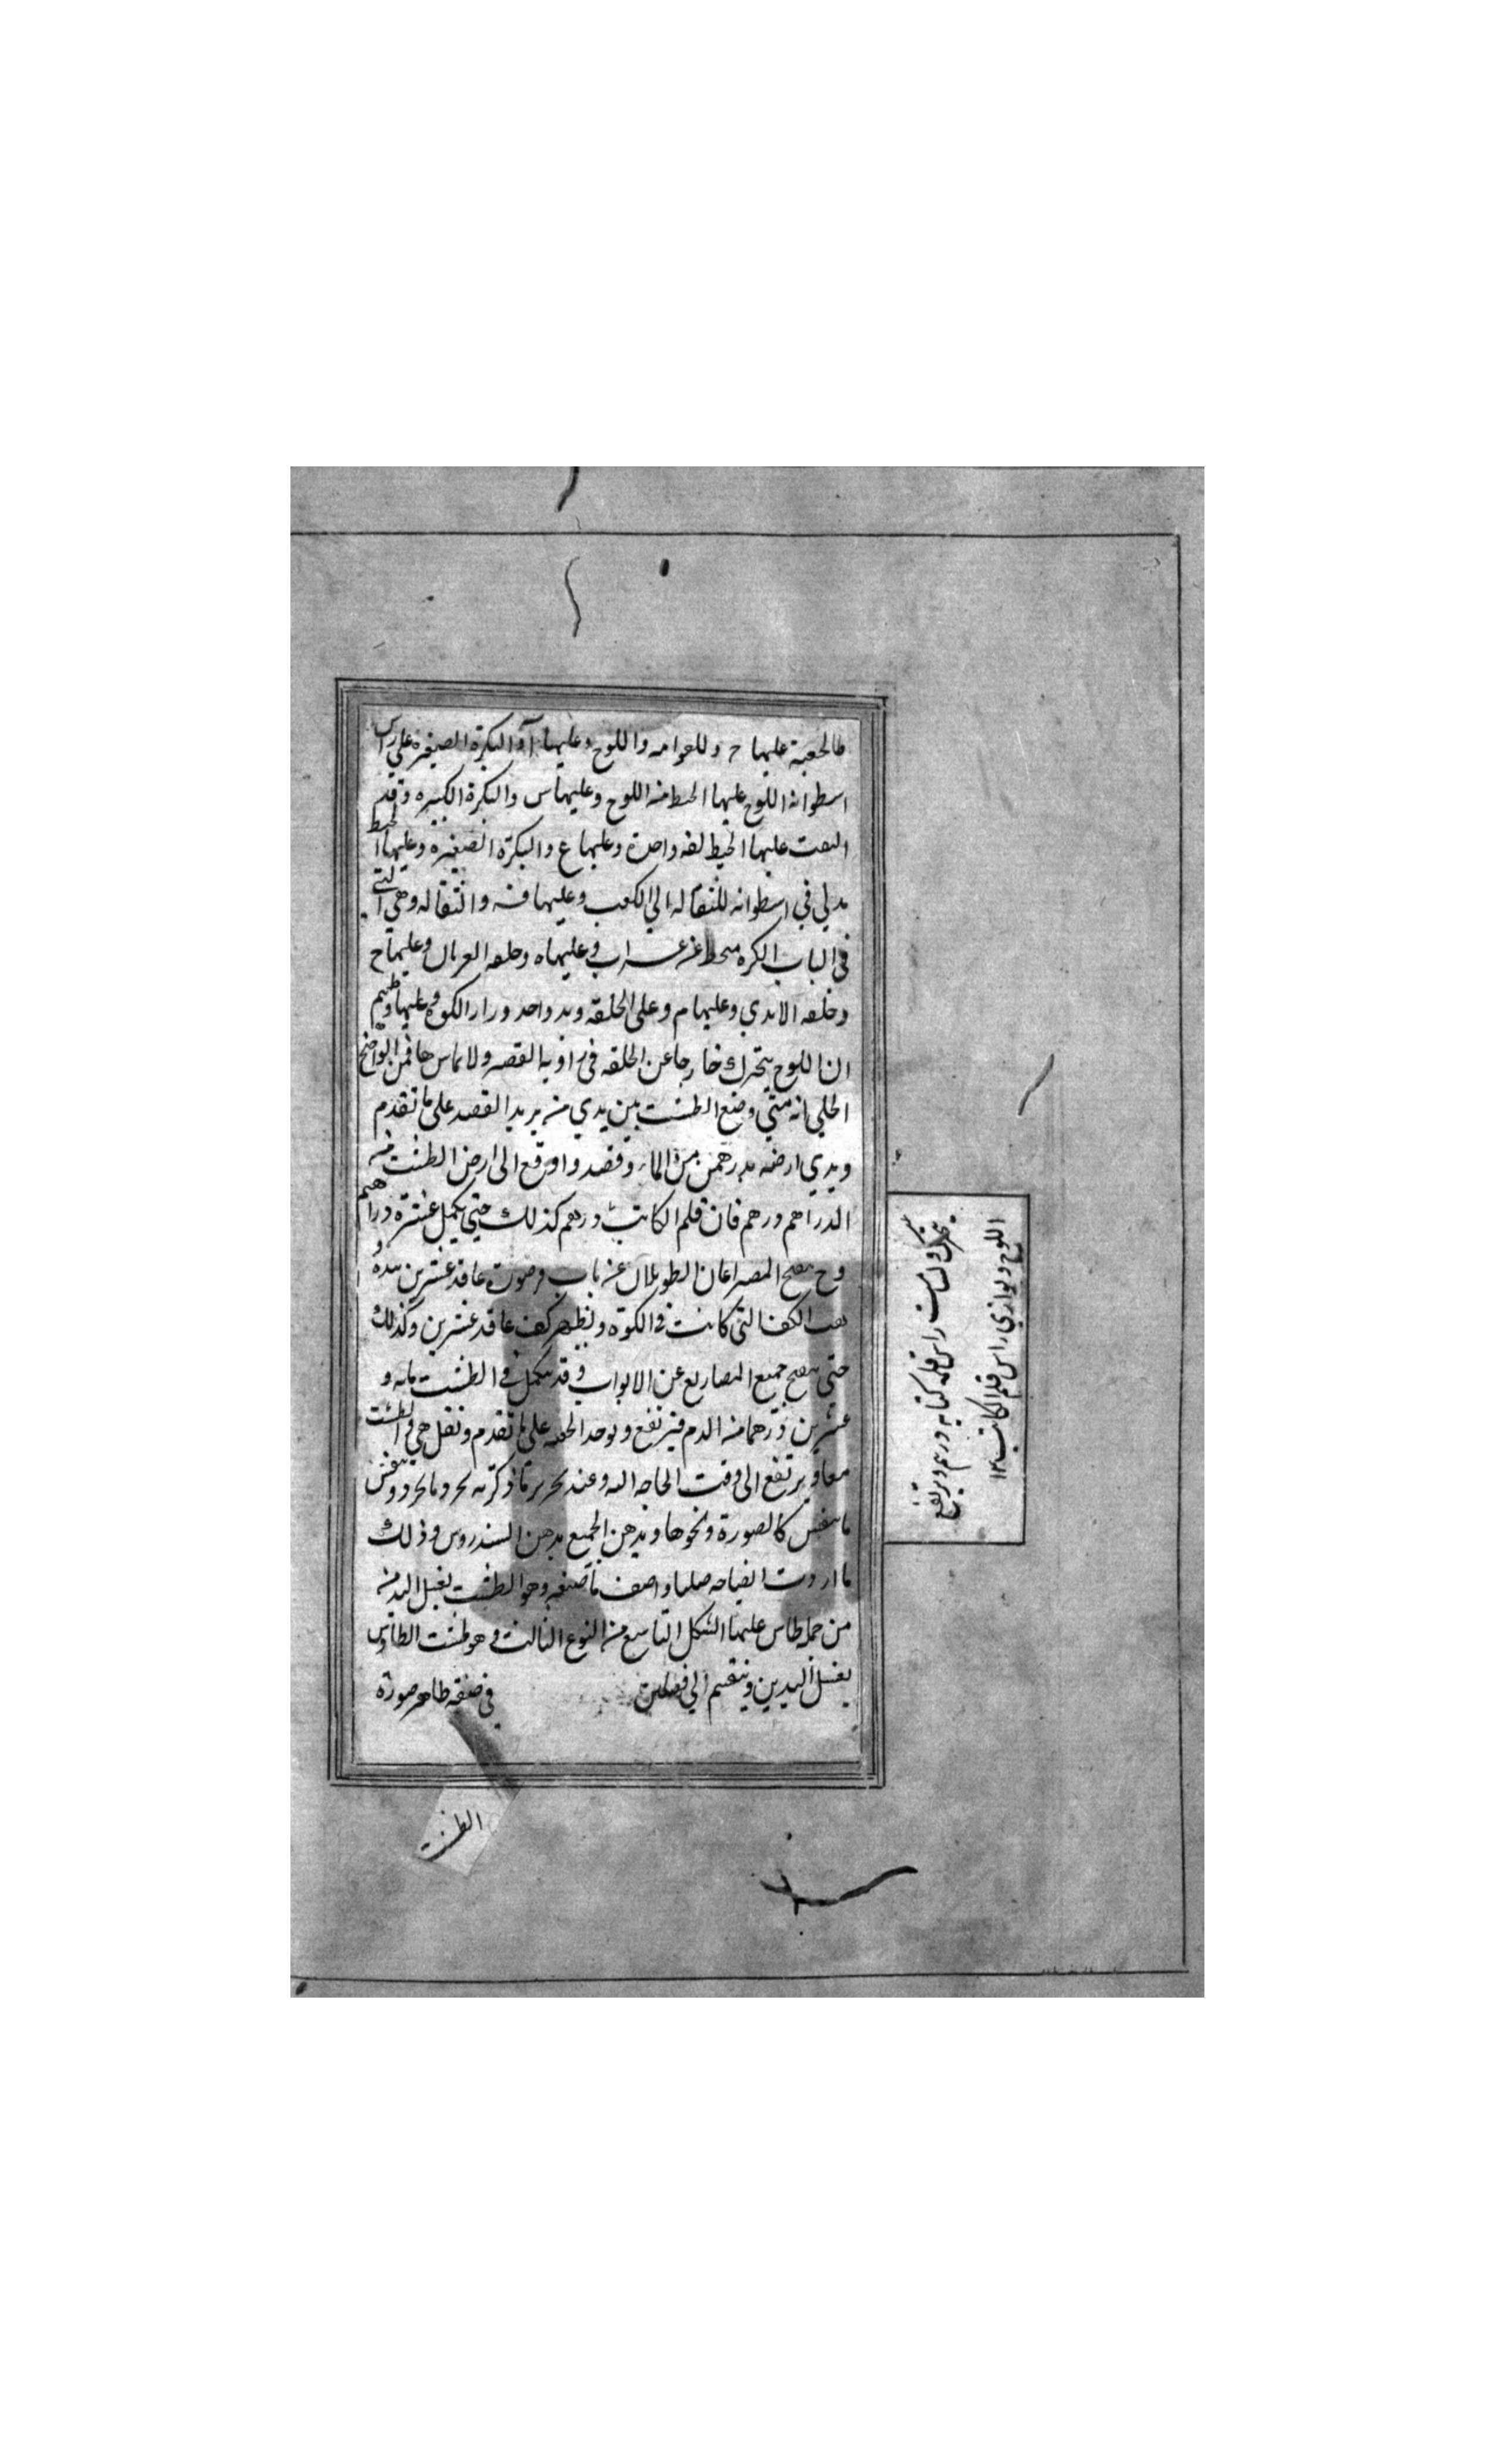 عليها ح واللوح وعليها آ والبكرة الصغيره على راس
اسطوانة اللوح عليها الخيط من اللوح وعليها س والبكرة الكبيره وقد
التفت عليها الخيط لفه واحدة وعليها ع والبكرة الصغيره وعليها الخيط
مدلي في اسطوانه للثقاله الي الكعب وعليها ف والثقاله وهي التي
في الباب الكره وعليها ه وحلقه وعليها ح
وحلقه الايدي وعليها م وعلى الحلقه ويد واحد ورا الكوه وعليها
ان اللوح يتحرك خارجا عن الحلقه في زاوية القصر ولا يماسها فمن الواضح
الجلي انه متي وضع الطشت بين يدي من يريد الفصد على ما تقدم
وبدي ارضه بدرهمين من الماء وفصد واوقع الى ارض الطشت من
الدراهم درهم فان قلم الكاتب درهم كذلك حتي يكمل عشرة دراهم
وح المصراعان الطويلان عن باب وصورة عاقد عشرين بيده و
الكف التي كانت في الكوة ويظهر كف عاقد عشرين وكذلك
حتى يفتح جميع المصاريع عن الابواب وقد يكمل في الطشت مايه و
عشرين درهما من الدم فيرتفع ويوخذ على ما تقدم ونقل هي في الطشت
معا ويرتفع الى وقت الحاجه اليه وعند تحرير ما ذكرته وينقش
ما ينقش كالصورة ونحوها ويدهن الجميع بدهن السندروس وذلك
ما اردت ايضاحه واصف ما صنعه وهو الطشت لغسل اليد من
من جمله طاس عليها الشكل التاسع من النوع الثالث وهو طشت الطاوس
يغسل اليدين وينقسم الي فصلين في صفة ظاهر صورة
الطشت
يتحرك راس قلمه كتابه درهم ويرتفع
اللوح ويوازي راس قلم الكاتب ١٢٠